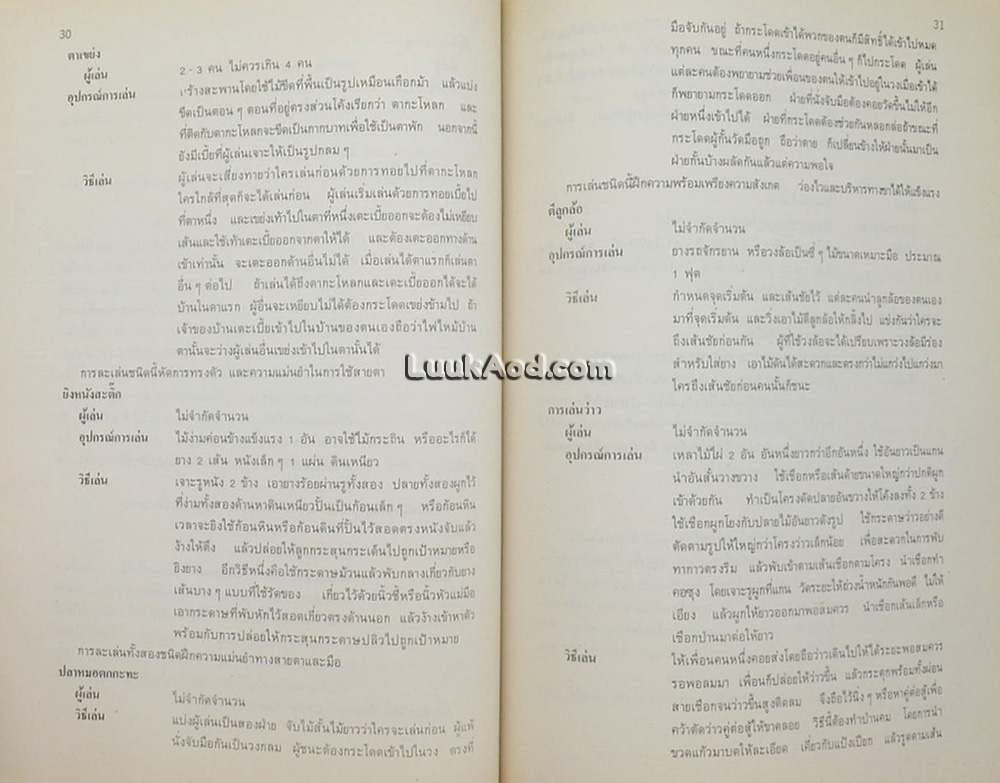 30
ตาเขย่ง
ผู้เล่น 2 - 3 คน ไม่ควรเกิน 4 คน
อุปกรณ์การเล่น สร้างสะพานโดยใช้ไม้ขีดที่พื้นเป็นรูปเหมือนเกือกม้า แล้วแบ่ง
ขีดเป็นตอน ๆ ตอนที่อยู่ตรงส่วนโค้งเรียกว่า ตากะโหลก และ
ที่ติดกับตากะโหลกจะขีดเป็นกากบาทเพื่อใช้เป็นตาพัก นอกจากนี้
ยังมีเบี้ยที่ผู้เล่นเจาะให้เป็นรูปกลม ๆ
วิธีเล่น ผู้เล่นจะเสี่ยงทายว่าใครเล่นก่อนด้วยการทอยไปที่ตากะโหลก
ใครใกล้ที่สุดก็จะได้เล่นก่อน ผู้เล่นเริ่มเล่นด้วยการทอยเบี้ยไป
ที่ตาหนึ่ง และเขย่งเท้าไปในตาที่หนึ่งเตะเบี้ยออกจะต้องไม่เหยียบ
เส้นและใช้เท้าเตะเบี้ยออกจากตาให้ได้ และต้องเตะออกทางด้าน
เข้าเท่านั้น จะเตะออกด้านอื่นไม่ได้ เมื่อเล่นได้ตาแรกก็เล่นตา
อื่น ๆ ต่อไป ถ้าเล่นได้ถึงตากะโหลกและเตะเบี้ยออกได้จะได้
บ้านในตาแรก ผู้อื่นจะเหยียบไม่ได้ต้องกระโดดเขย่งข้ามไป ถ้า
เจ้าของบ้านเตะเบี้ยเข้าไปในบ้านของตนเองถือว่าไฟไหม้บ้าน
ตานั้นจะว่างผู้เล่นอื่นเขย่งเข้าไปในตานั้นได้
การละเล่นชนิดนี้หัดการทรงตัว และความแม่นยำในการใช้สายตา
ยิงหนังสะติ๊ก
ผู้เล่น ไม่จำกัดจำนวน
อุปกรณ์การเล่น ไม้ง่ามค่อนข้างแข็งแรง 1 อัน อาจใช้ไม้กระถิน หรืออะไรก็ได้
ยาง 2 เส้น หนังเล็ก ๆ 1 แผ่น ดินเหนียว
วิธีเล่น เจาะรูหนัง 2 ข้าง เอายางร้อยผ่านรูทั้งสอง ปลายทั้งสองผูกไว้
ที่ง่ามทั้งสองด้านหาดินเหนียวปั้นเป็นก้อนเล็ก ๆ หรือก้อนหิน
เวลาจะยิงใช้ก้อนหินหรือก้อนดินที่ปั้นไว้สอดตรงหนังจับแล้ว
ง้างให้ตึง แล้วปล่อยให้ลูกกระสุนกระเด็นไปถูกเป้าหมายหรือ
ยิงยาง อีกวิธีหนึ่งคือใช้กระดาษม้วนแล้วพับกลางเกี่ยวกับยาง
เส้นบาง ๆ แบบที่ใช้รัดของ เกี่ยวไว้ด้วยนิ้วชี้หรือนิ้วหัวแม่มือ
เอากระดาษที่พับหักไว้สอดเกี่ยวตรงด้านนอก แล้วง้างเข้าหาตัว
พร้อมกับการปล่อยให้กระสุนกระดาษปลิวไปถูกเป้าหมาย
การละเล่นทั้งสองชนิดฝึกความแม่นยำทางสายตาและมือ
ปลาหมอตกกะทะ
ผู้เล่น ไม่จำกัดจำนวน
วิธีเล่น แบ่งผู้เล่นเป็นสองฝ่าย จับไม้สั้นไม้ยาวว่าใครจะเล่นก่อน ผู้แพ้
นั่งจับมือกันเป็นวงกลม ผู้ชนะต้องกระโดดเข้าไปในวง ตรงที่
31
มือจับกันอยู่ ถ้ากระโดดเข้าได้พวกของตนก็มีสิทธิ์ได้เข้าไปหมด
ทุกคน ขณะที่คนหนึ่งกระโดดอยู่คนอื่น ๆ ก็ไปกระโดด ผู้เล่น
แต่ละคนต้องพยายามช่วยเพื่อนของตนให้เข้าไปอยู่ในวงเมื่อเข้าได้
ก็พยายามกระโดดออก ฝ่ายที่นั่งจับมือต้องคอยวัดขึ้นไม่ให้อีก
ฝ่ายหนึ่งเข้าไปได้ ฝ่ายที่กระโดดต้องช่วยกันหลอกล่อถ้าขณะที่
กระโดดผู้กั้นวัดมือถูก ถือว่าตาย ก็เปลี่ยนข้างให้ฝ่ายนั้นมาเป็น
ฝ่ายกั้นบ้างผลัดกันแล้วแต่ความพอใจ
การเล่นชนิดนี้ฝึกความพร้อมเพรียงความสังเกต ว่องไวและบริหารทางขาได้ให้แข็งแรง
ตีลูกล้อ
ผู้เล่น ไม่จำกัดจำนวน
อุปกรณ์การเล่น ยางรถจักรยาน หรือวงล้อเป็นซี่ ๆ ไม้ขนาดเหมาะมือ ประมาณ
1 ฟุต
วิธีเล่น กำหนดจุดเริ่มต้น และเส้นชัยไว้ แต่ละคนนำลูกล้อของตนเอง
มาที่จุดเริ่มต้น และวิ่งเอาไม้ตีลูกล้อให้กลิ้งไป แข่งกันว่าใครจะ
ถึงเส้นชัยก่อนกัน ผู้ที่ใช้วงล้อจะได้เปรียบเพราะวงล้อมีร่อง
สำหรับใส่ยาง เอาไม้ดันได้สะดวกและตรงกว่าไม่แกว่งไปแกว่งมา
ใครถึงเส้นชัยก่อนคนนั้นก็ชนะ
การเล่นว่าว
ผู้เล่น ไม่จำกัดจำนวน
อุปกรณ์การเล่น เหลาไม้ไผ่ 2 อัน อันหนึ่งยาวกว่าอีกอันหนึ่ง ใช้อันยาวเป็นแกน
นำอันสั้นวางขวาง ใช้เชือกหรือเส้นด้ายขนาดใหญ่กว่าปกติผูก
เข้าด้วยกัน ทำเป็นโครงดัดปลายอันขวางให้โค้งลงทั้ง 2 ข้าง
ใช้เชือกผูกโยงกับปลายไม้อันยาวดังรูป ใช้กระดาษว่าวอย่างดี
ตัดตามรูปให้ใหญ่กว่าโครงว่าวเล็กน้อย เพื่อสะดวกในการพับ
ทากาวตรงริม แล้วพับเข้าตามเส้นเชือกตามโครง นำเชือกทำ
คอซุง โดยเจาะรูผูกที่แกน วัดระยะให้ถ่วงน้ำหนักกันพอดี ไม่ให้
เอียง แล้วผูกให้ยาวออกมาพอสมควร นำเชือกเส้นเล็กหรือ
เชือกป่านมาต่อให้ยาว
วิธีเล่น ให้เพื่อนคนหนึ่งคอยส่งโดยถือว่าวเดินไปให้ได้ระยะพอสมควร
รอพอลมมา เพื่อนก็ปล่อยให้ว่าวขึ้น แล้วกระตุกพร้อมทั้งผ่อน
สายเชือกจนว่าวขึ้นสูงติดลม จึงถือไว้นิ่ง ๆ หรือหาคู่ต่อสู้เพื่อ
คว้าตัดว่าวคู่ต่อสู้ให้ขาดลอย วิธีนี้ต้องทำป่านคม โดยการนำ
ขวดแก้วมาบดให้ละเอียด เคี่ยวกับแป้งเปียก แล้วรูดตามเส้น
LuukAod.com